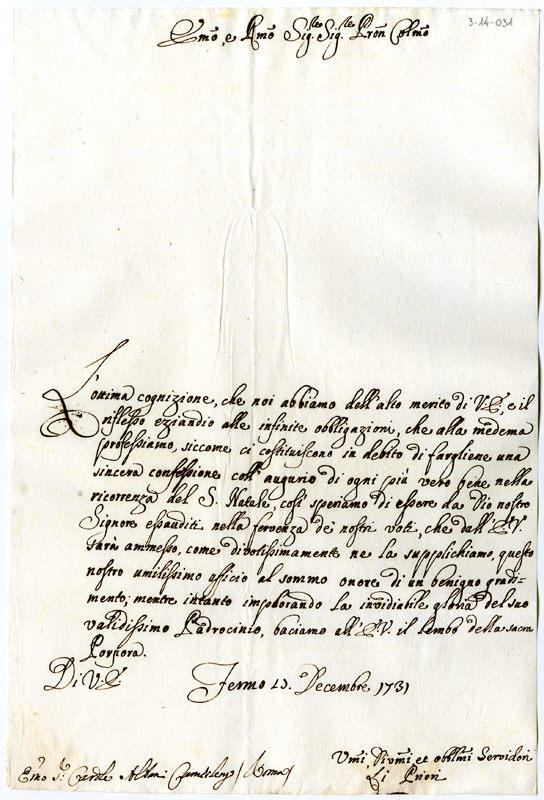 3-14-031
Emo, e Rmo Sig. Sig. Pron Colmo
L'ottima cognizione, che noi abbiamo dell'alto merito di V.E., e il
riflesso eziandio alle infinite obbligazioni, che alla medema
professiamo, siccome ci costituiscono in debito di fargliene una
sincera confessione coll'augurio di ogni più vero bene nella
ricorrenza del S. Natale, così speriamo di essere da Dio nostro
Signore essauditi nella fervenza de' nostri voti, che dall'E.V.
sarà ammesso, come divotissimamente ne la supplichiamo, questo
nostro umilissimo ufficio al sommo onore di un benigno gradi-
mento; mentre intanto implorando la invidiabile gloria del suo
validissimo Padrocinio, baciamo all'E.V. il lembo della sacra
Porpora.
Di V.E. Fermo Decembre 1731
Vmi, Divmi et obblmi Servidori
Emo Sr. Cardle Albani Camerlengo / Roma /
Li Priori